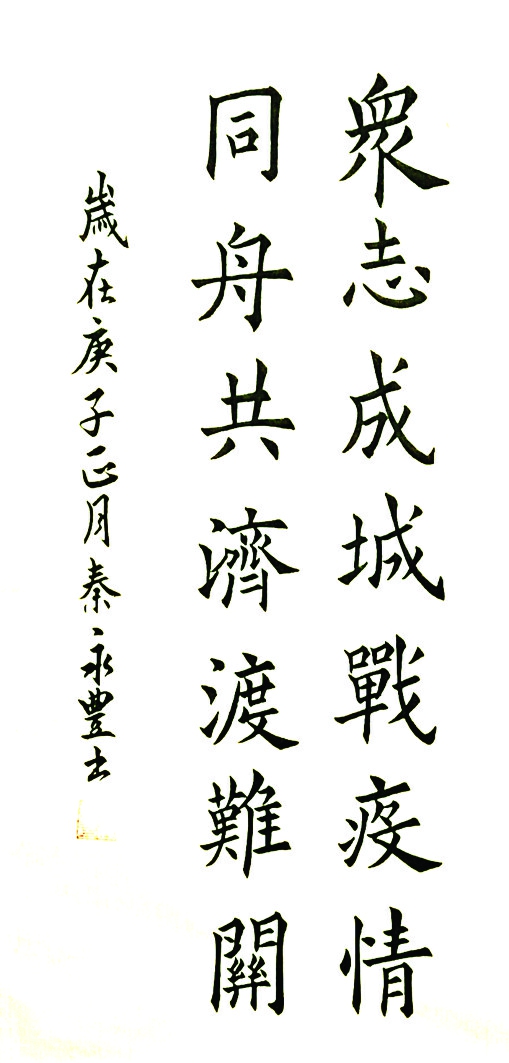 衆志成城戰疫情
同舟共濟渡難關
歲在庚子正月秦永豐书